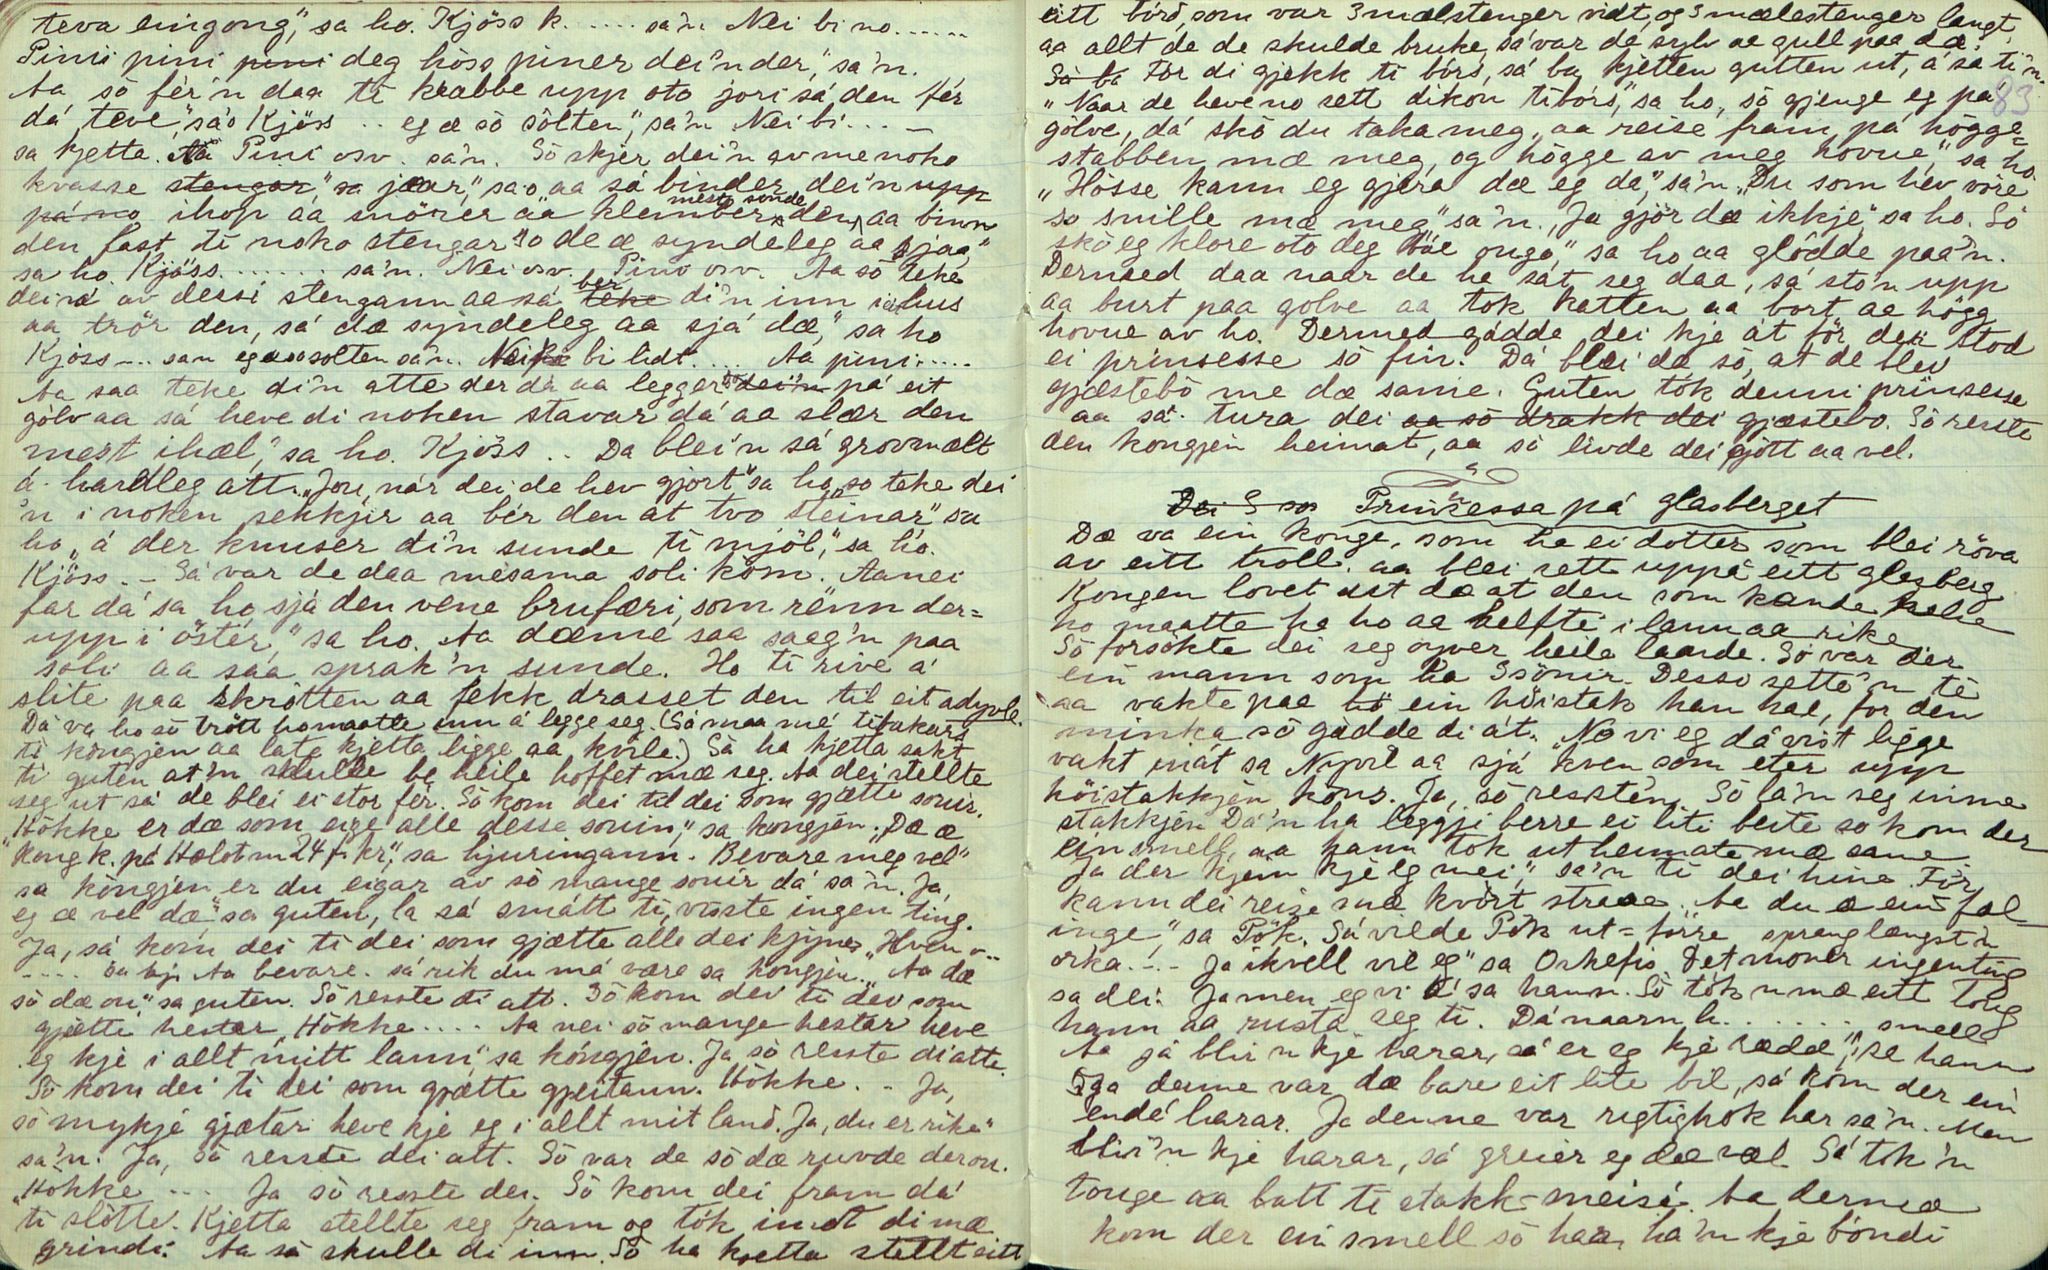 teva eingong," sa ho. Kjöss k..... sa'n Nei bi no......
Pini pini pini deg höss piner dei'n der," sa'n.
Aa sö fér'n daa ti krabbe upp oto jori sá den fér
dá teve," sá'o Kjöss .. eg æ sö sölten," sa'n Nei bi... –
sa kjetta. Aa Pini osv. sa'n. Sö skjer dei'n av me noko
kvasse stengar" sa jaar," sa o aa sá binder dei'n upp
pá no ihop áa snörer aa klember mest sunde den, aa binn
den fast ti noko stengar so de æ syndeleg aa sjaa,"
sa ho. Kjöss....... sa'n. Nei osv. Pino osv. Aa sö teke
dei ná av dessi stengann aa sá teke ber di'n inn i et hus
aa trör den, sá dæ syndeleg aa sjá dæ," sa ho
Kjöss --- sa'n eg æ so solten sa'n. Nei bi lidt.... Aa pini....
Aa saa teke di'n atte der dá aa legger so dei'n pá eit
gölv aa sá heve di noken stavar dá aa slær den
mest ihæl," sa ho. Kjöss .. Da blei'n sá grovmælt
á hardleg att. "Jou, nár dei de hev gjort" sa ho, so teke dei
'n i noken sekkjir aa bér den át tvo steinar" sa
ho, "á der knuser di'n sunde ti mjöl," sa ho.
Kjöss. – Sá var de daa mésama soli köm. Aa nei
far dá sa ho, sjá den vene brufæri, som renn der=
upp i öster," sa ho. Aa dæmé saa saag'n paa
soli aa sáa sprak'n sunde. Ho ti rive á
slite paa skrötten aa fekk drasset den til eit adyvle.
Dá va ho sö trött ho maatte inn á legge seg. (Sá maa mé tebakars
ti kongjen aa lata kjetta ligge aa kvile.) Sá ha kjetta sakt
ti guten at'n skulle be heile hoffet mæ seg. Aa dei stellte
seg ut sá de blei ei stor fér. Sö kom dei til dei som gjætte souir.
"Hökke er dæ som eige alle desse souin," sa kongjen. "Dæ æ
Kong k. pá Hælotm 24 f. kr," sa hjuringann. Bevare meg vel"
sa kongjen er du eigar av sö mange souir dá sa'n. Ja,
eg æ vel dæ," sa guten, la sá smátt ti, visste ingen ting.
Ja, sá kom dei ti dei som gjætte alle dei kjyne. "Hven v..
.... sa kj. Aa bevare. sá rik du má være sa kongjen.. "Aa dæ
sö dæ on," sa guten. Sö resste di att. Sö kom dei ti dei som
gjætte hestar "Hökke.... Aa nei sö mange hestar heve
eg kje i allt mitt lann," sa kóngjen. Ja sö resste di atte.
Sö kom dei ti dei som gjætte gjeitann. Hökke. – Ja,
sö mykjé gjætar heve kje eg i allt mit land. Ja, du er rike"
sa'n. Ja, sá resste dei att. Sö var de sö dæ ruvde deron.
"Hökke ... Ja sö resste dei. Sö kom dei fram dá
ti slötte. Kjetta stellte seg fram og tók imot di mæ
grindi. Aa sá skulle di inn. Sö ha kjetta stellt eitt
eitt bórd, som var 3 mælstenger vidt, og 3 mælestenger langt,
aa allt de de skulde bruke, sá var de sylv aa gull paa dæ.
Sá ba För di gjekk ti bórs, sá ba kjetten gutten ut, á sa ti'n.
83
"Naar de heve no sett dikon tibórs," sa ho, "sö gjenge eg pa
gölve, dá skö du taka meg, aa reise fram pá högge=
stabben mæ meg, og högge av meg hovue," sa ho.
"Hösse kann eg gjéra dæ eg da," sa'n. "Du som hev vöre
so snille mæ meg" sa'n. "Ja gjör dæ ikkje," sa ho. Sö
skö eg klore oto deg bae ougo," sa ho aa glödde paa'n.
Dermed daa naar de ha sát seg daa, sá sto'n upp
aa burt paa golve aa tok katten aa bort aa högg
hovue av ho. Dermed gádde dei kje át för der stod
ei prinsesse sö fin. Dá blei dæ sö, at de blev
gjæstebö me dæ same. Guten tök denni prinsesse
aa sá tura dei aa sö drakk dei gjæstebo. Sö resste
den kongjen heimat, aa sö livde dei gjött aa vel.
Dei 3 so Prinsessa pá glasberget
Dæ va ein konge, som ha ei dotter som blei röva
av eitt troll. aa blei sett uppá eitt glasberg
Kongen lovet ut dæ at den som kande
ho maatte ha ho aa helfti i lann aa rike
Sö forsökte dei seg ovver heile laande. Sö var der
ein mann som ha 3 sönir. Dessi sette'n te
aa vakte paa hö ein höistak han hae, for den
minka sö gádde di át. "No vi eg dá visst ligge
vakt inát sa Nyvel aa sjá kven som eter upp
höistakkjén kons. Ja, sö resste'n. Sö la'n seg inme
stakkjén Dá'n ha leggji berre ei liti beite so kom der
ein smell, aa hann tok ut heimate mæ same.
"Ja der kjem kje eg mei," sa'n ti dei hine. För
kann dei reise mæ kvört straae. Aa du æ ein fal=
inge," sa Pök. Sá vilde Pök ut=förre sprang længst'n
orka.–.– Ja ikvell vil eg," sa Oskefis Det moner ingenting
sa dei. Jamen eg vi á sa hann. Sö tók'n mæ eitt tong
hann aa rusta seg ti. Dá naarn h...... smell
Aa já blir'n kje harar, sá er eg kjé rædd," sa hann
Ja denne var dæ bare eit lite bil, sá kom der ein
endé harar. Ja denne var rigtighok har sa'n. Men
blir'n kje harar, sá greier eg dæ væl. Sá tok'n
tonge aa batt ti stakk-meisi. Aa dermæ
kom der ein smell sö har, ha'n kje böndi